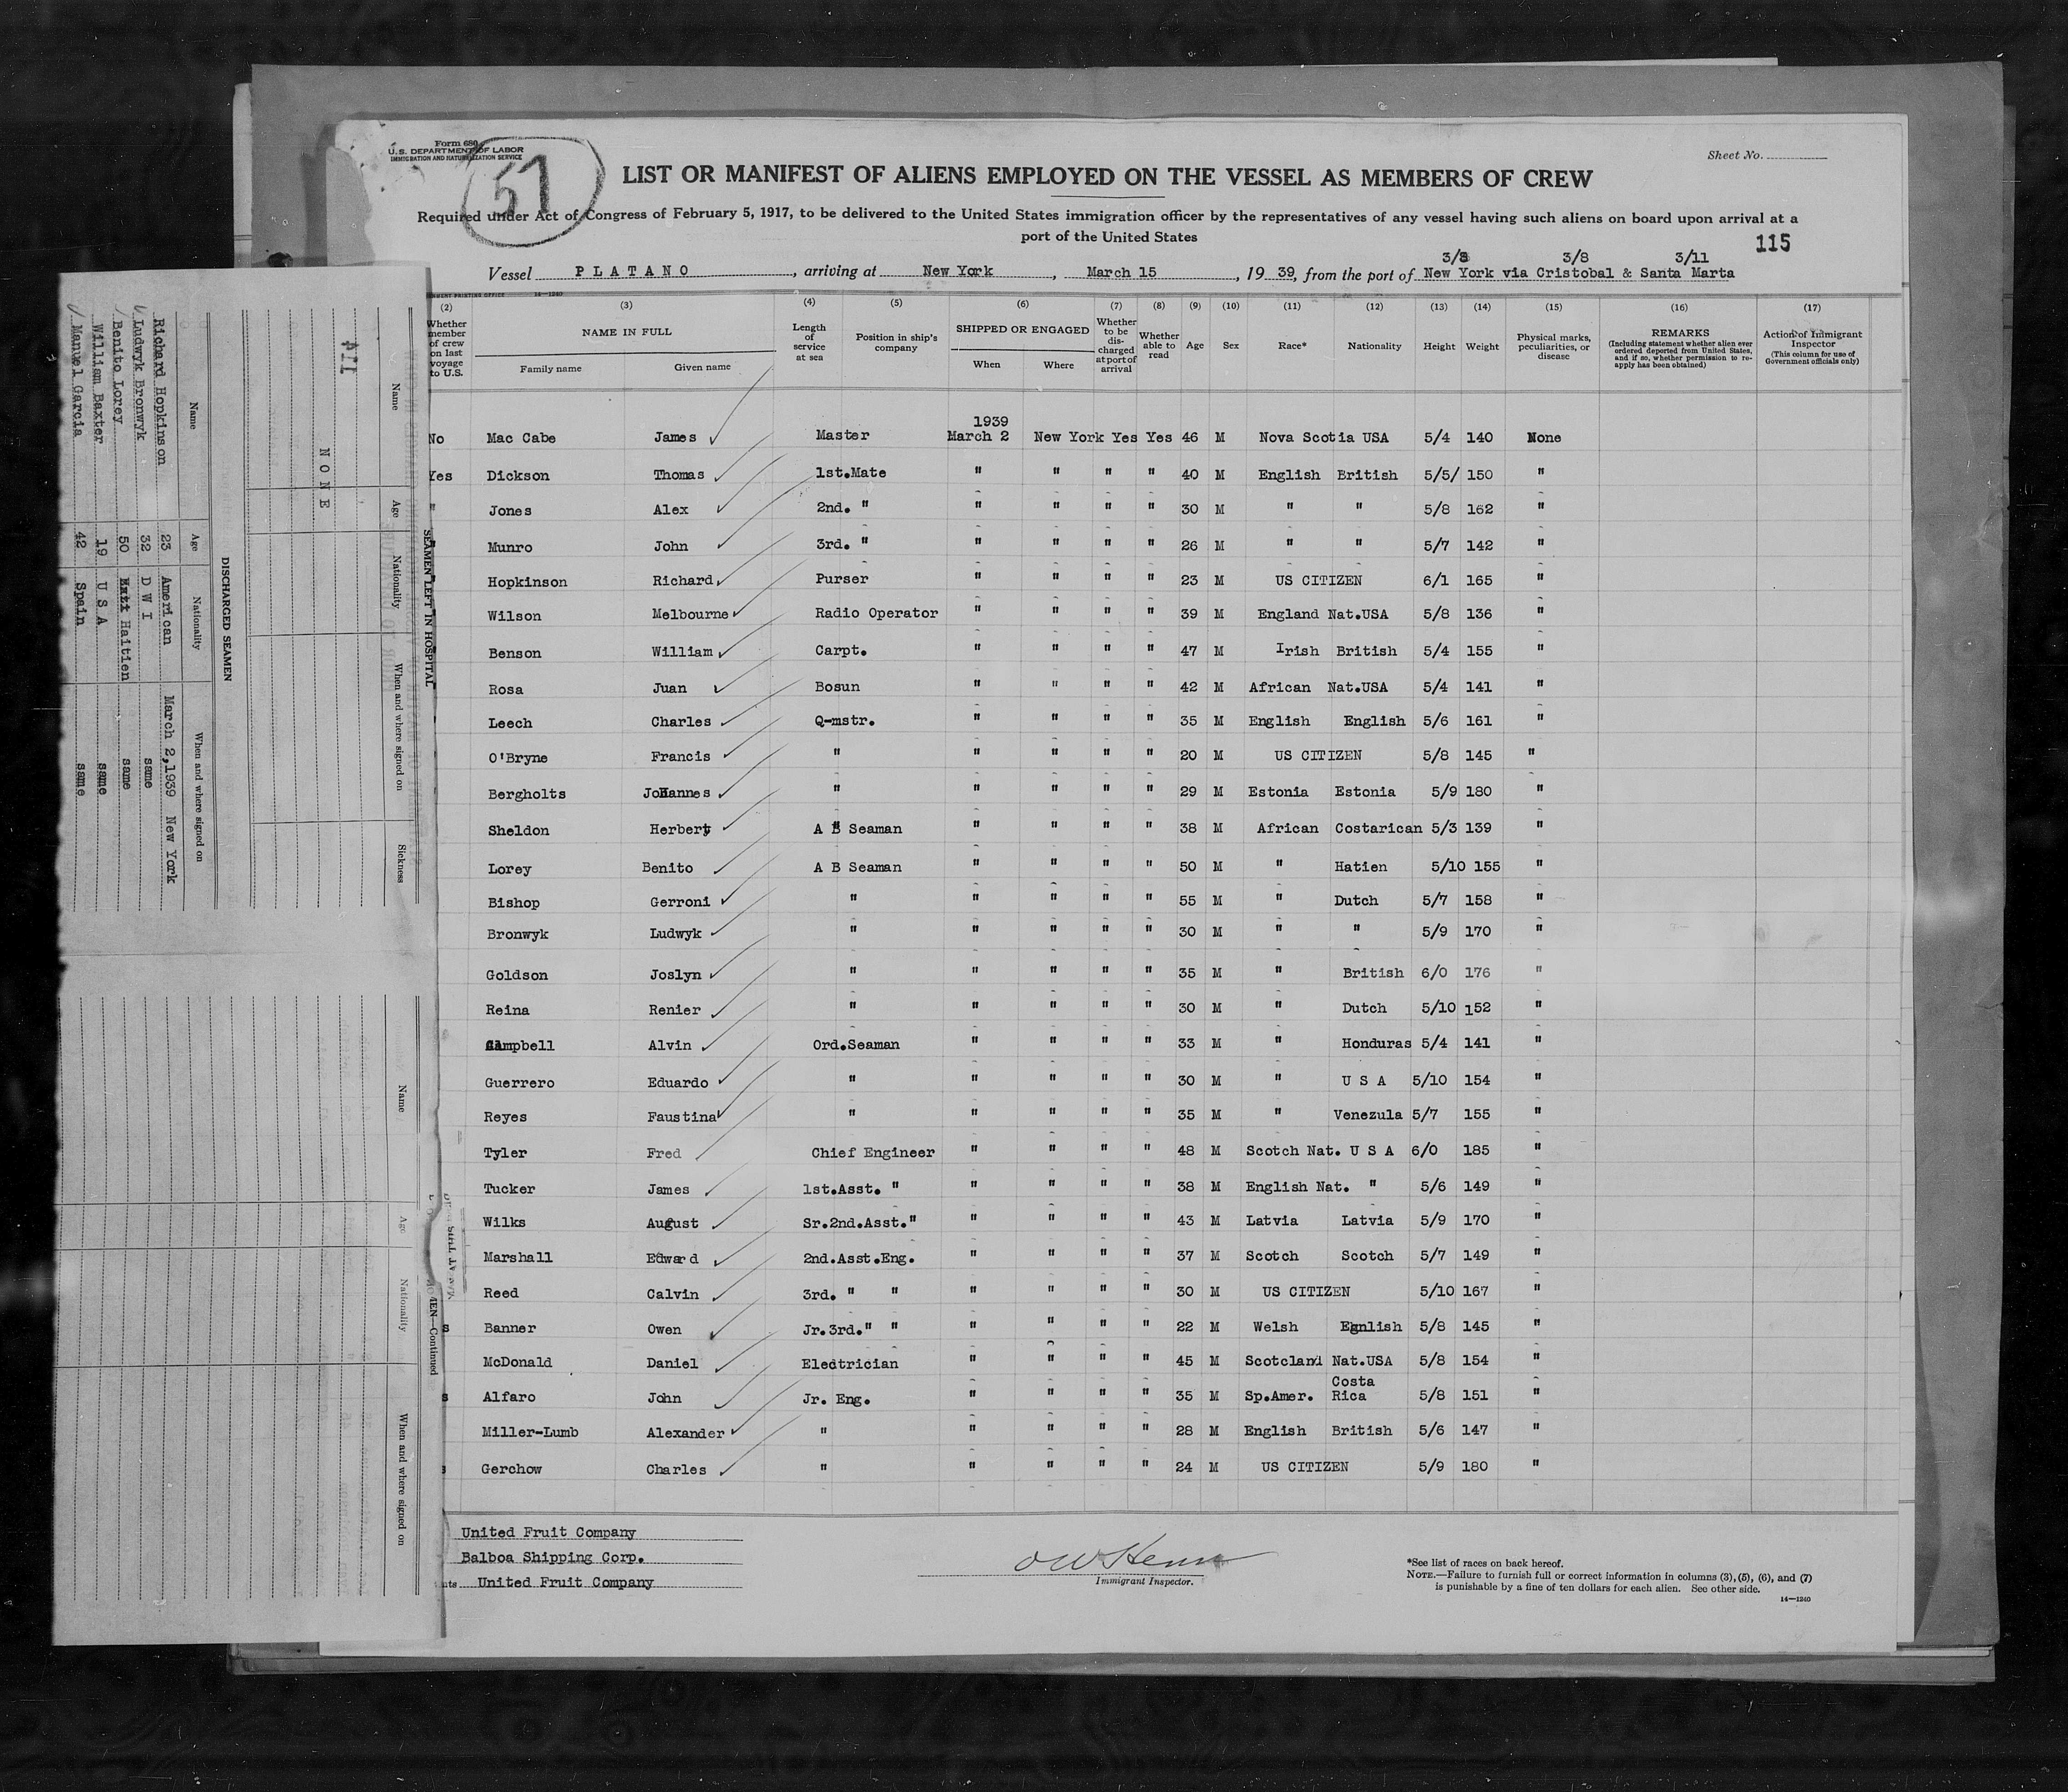 Form 680
U. S. DEPARTMENT OF LABOR
IMMIGRATION AND NATURALIZATION SERVICE
57
Sheet No.
LIST OR MANIFEST OF ALIENS EMPLOYED ON THE VESSEL AS MEMBERS OF CREW
Required under Act of Congress of February 5, 1917, to be delivered to the United States immigration officer by the representatives of any vessel having such aliens on board upon arrival at a
port of the United States
115
3/8 3/8 3/11
Vessel PLATANO, arriving at New York, March 15, 1939, from the port of New York via Cristobal & Santa Marta
(2) (3) (4) (5) (6) (7) (8) (9) (10) (11) (12) (13) (14) (15) (16) (17)
Whether member of crew on last voyage to U.S.
NAME IN FULL
Family name Given name
Length of service at sea
Position in ship's company
SHIPPED OR ENGAGED
When Where
Whether to be discharged at port of arrival
Whether able to read
Age Sex Race* Nationality Height Weight
Physical marks, peculiarities, or disease
REMARKS
(Including statement whether alien ever ordered deported from United States, and if so, whether permission to re-apply has been obtained)
Action of Immigrant Inspector
(This column for use of Government officials only)
1939
No Mac Cabe James Master March 2 New York Yes Yes 46 M Nova Scotia USA 5/4 140 None
Yes Dickson Thomas 1st.Mate " " " " 40 M English British 5/5/ 150 "
" Jones Alex 2nd. " " " " " 30 M " " 5/8 162 "
Munro John 3rd. " " " " " 26 M " " 5/7 142 "
Hopkinson Richard Purser " " " " 23 M US CITIZEN 6/1 165 "
Wilson Melbourne Radio Operator " " " " 39 M England Nat.USA 5/8 136 "
Benson William Carpt. " " " " 47 M Irish British 5/4 155 "
Rosa Juan Bosun " " " " 42 M African Nat.USA 5/4 141 "
Leech Charles Q-mstr. " " " " 35 M English English 5/6 161 "
O'Bryne Francis " " " " " 20 M US CITIZEN 5/8 145 "
Bergholts Johannes " " " " " 29 M Estonia Estonia 5/9 180 "
Sheldon Herbert A B Seaman " " " " 38 M African Costarican 5/3 139 "
Lorey Benito A B Seaman " " " " 50 M " Hatien 5/10 155 "
Bishop Gerroni " " " " " 55 M " Dutch 5/7 158 "
Bronwyk Ludwyk " " " " " 30 M " " 5/9 170 "
Goldson Joslyn " " " " " 35 M " British 6/0 176 "
Reina Renier " " " " " 30 M " Dutch 5/10 152 "
Campbell Alvin Ord.Seaman " " " " 33 M " Honduras 5/4 141 "
Guerrero Eduardo " " " " " 30 M " U S A 5/10 154 "
Reyes Faustina " " " " " 35 M " Venezula 5/7 155 "
Tyler Fred Chief Engineer " " " " 48 M Scotch Nat. U S A 6/0 185 "
Tucker James 1st.Asst. " " " " " 38 M English Nat. " 5/6 149 "
Wilks August Sr.2nd.Asst." " " " " 43 M Latvia Latvia 5/9 170 "
Marshall Edward 2nd.Asst.Eng. " " " " 37 M Scotch Scotch 5/7 149 "
Reed Calvin 3rd. " " " " " " 30 M US CITIZEN 5/10 167 "
s Banner Owen Jr.3rd." " " " " " 22 M Welsh Egnlish 5/8 145 "
McDonald Daniel Electrician " " " " 45 M Scotcland Nat.USA 5/8 154 "
s Alfaro John Jr. Eng. " " " " 35 M Sp.Amer. Costa Rica 5/8 151 "
Miller-Lumb Alexander " " " " " 28 M English British 5/6 147 "
Gerchow Charles " " " " " 24 M US CITIZEN 5/9 180 "
United Fruit Company
Balboa Shipping Corp.
nts United Fruit Company
Immigrant Inspector.
*See list of races on back hereof.
NOTE.—Failure to furnish full or correct information in columns (3), (5), (6), and (7)
is punishable by a fine of ten dollars for each alien. See other side.
14—1240
SEAMEN LEFT IN HOSPITAL
Name Age Nationality When and where signed on Sickness
114
NONE
DISCHARGED SEAMEN
Name Age Nationality When and where signed on
Richard Hopkinson 23 American March 2,1939 New York
Ludwyk Bronwyk 32 D W I same
Benito Lorey 50 Haitien same
William Baxter 19 U S A same
Manuel Garcia 42 Spain same
MEN—Continued
Name Age Nationality When and where signed on